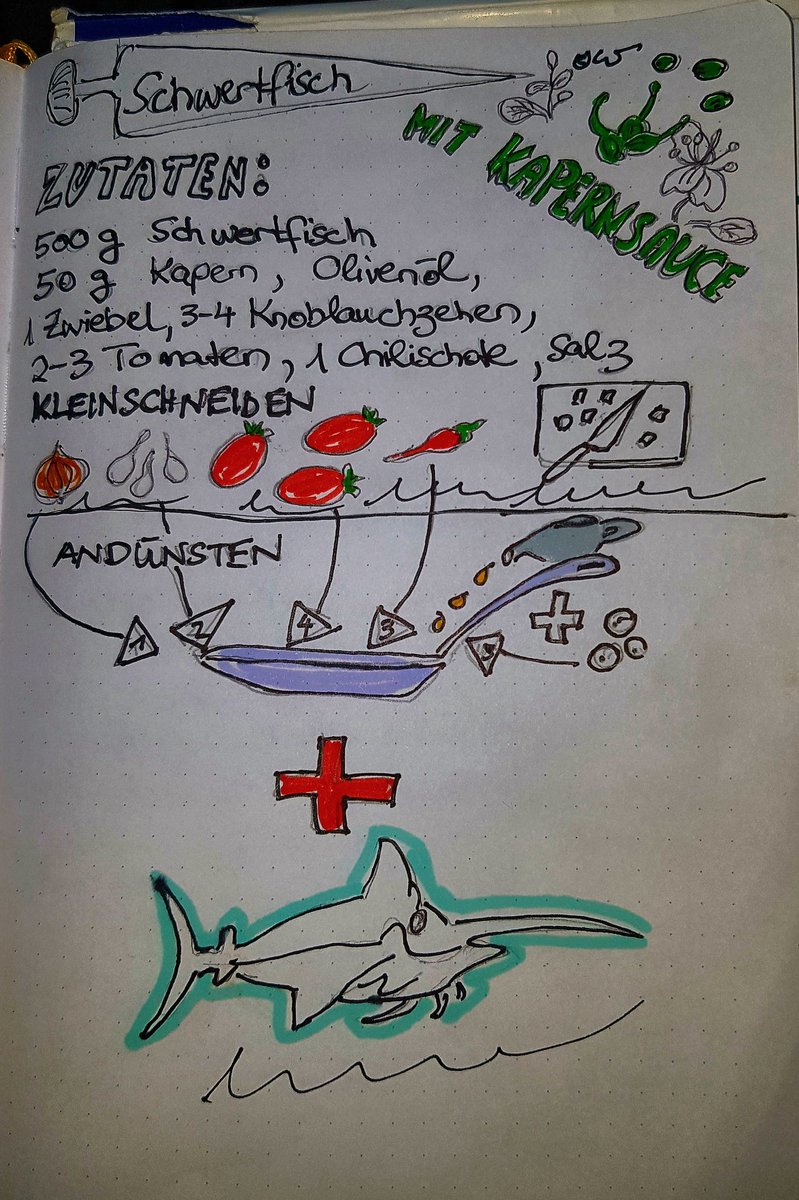 Schwertfisch
MIT KAPERNSAUCE
ZUTATEN:
500 g Schwertfisch
50 g Kapern, Olivenöl,
1 Zwiebel, 3-4 Knoblauchzehen,
2-3 Tomaten, 1 Chilischote, Salz
KLEINSCHNEIDEN
ANDÜNSTEN
1
2
4
3
5